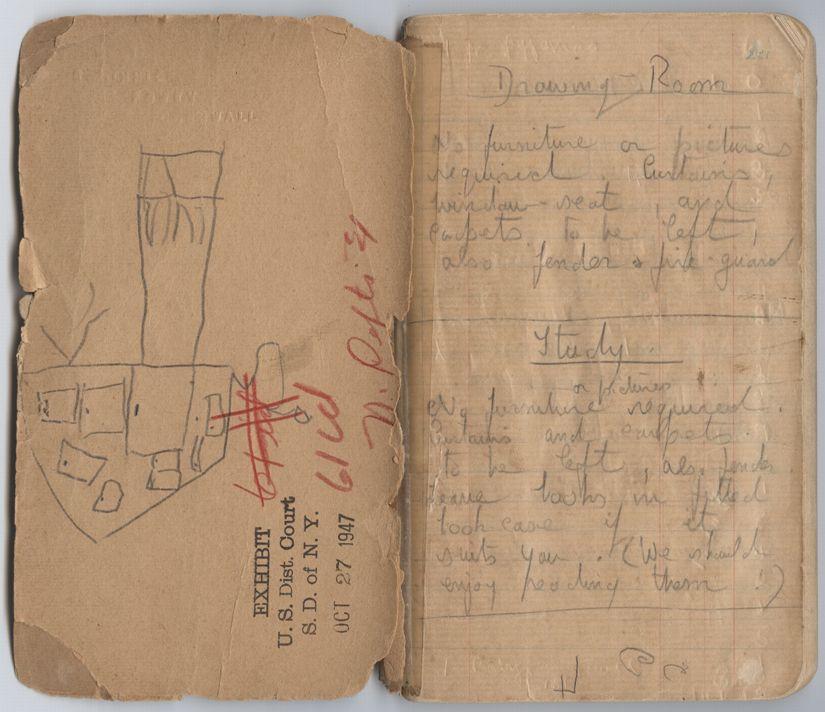 EXHIBIT
U. S. Dist. Court
S. D. of N. Y.
OCT 27 1947
Drawing-Room
No furniture or pictures
required. Curtains,
window-seat, and
carpets to be left,
also fender & fire-guard
Study.
or pictures
No furniture required.
Curtains and carpets
to be left, also fender
Leave books in fitted
book-case if it
suits you. (We should
enjoy reading them!)